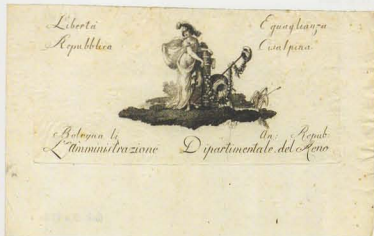 Libertà Eguaglianza
Repubblica Cisalpina
Bologna li An: Repub:
L'amministrazione Dipartimentale del Reno